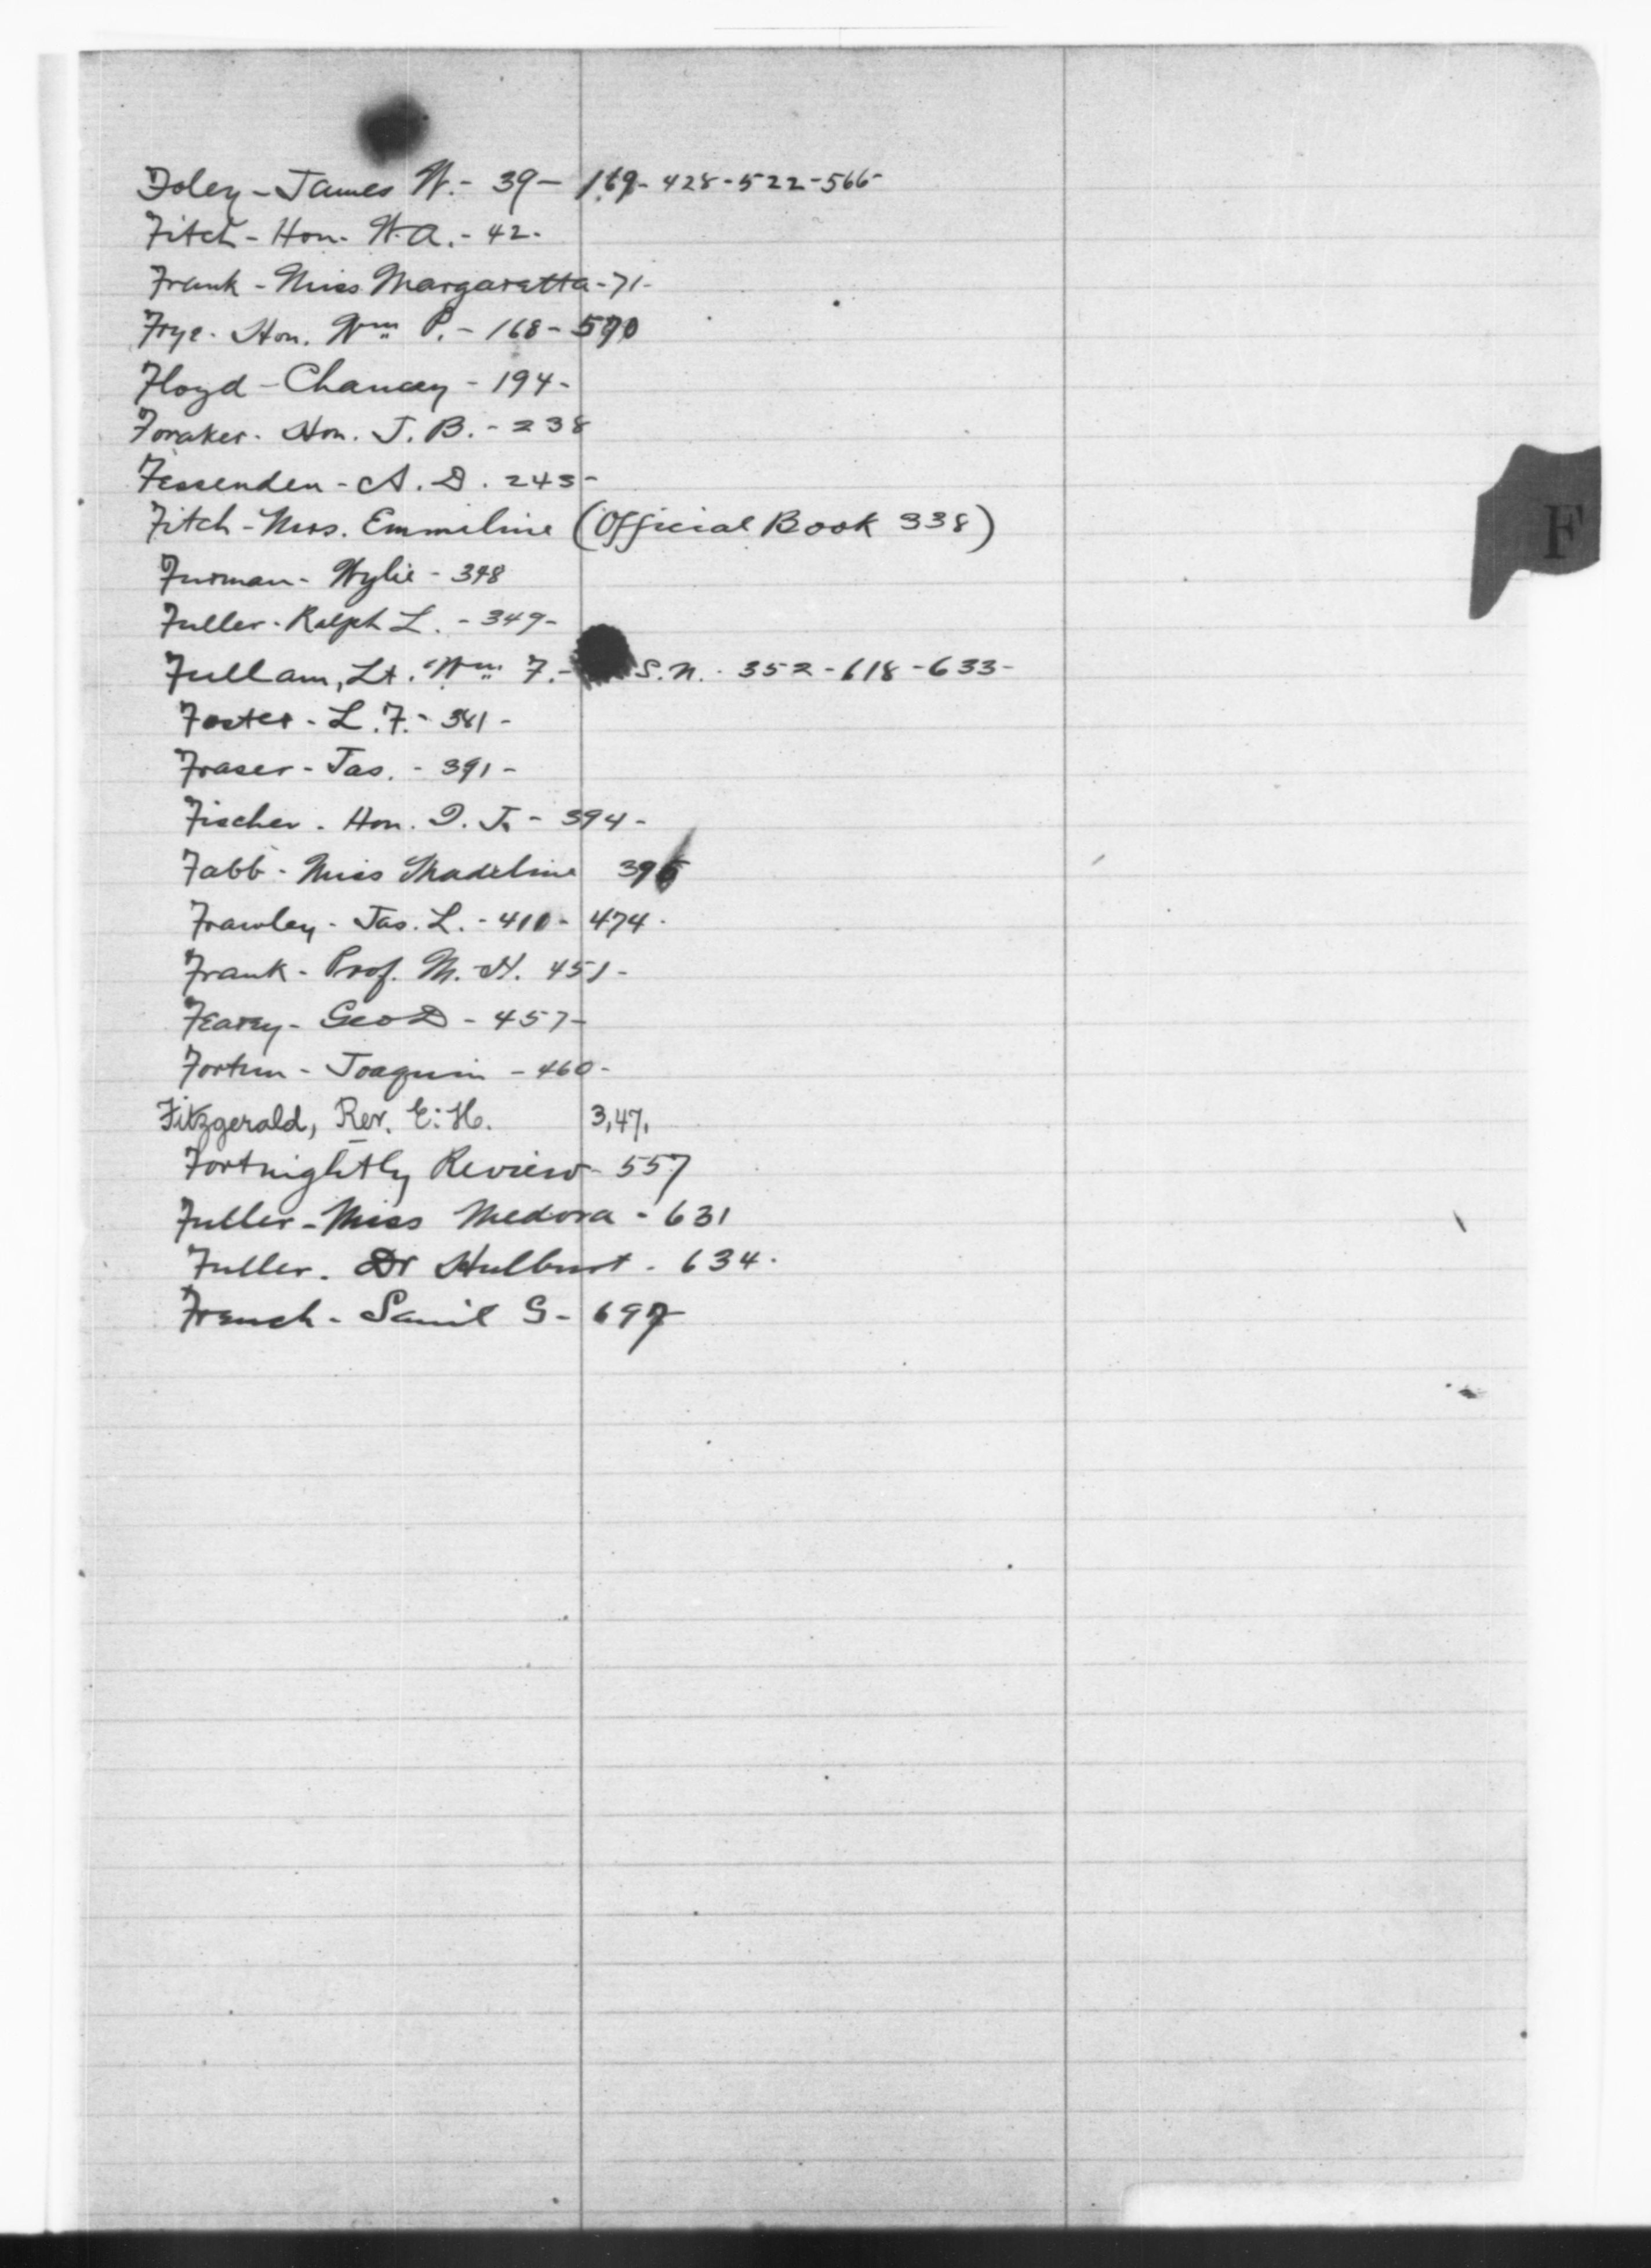 Foley - James W. - 39 - 169 - 428 - 522 - 566 -
Fitch - Hon. W. A. - 42 -
Frank - Miss Margaretta - 71 -
Frye - Hon. Wm P. - 168 - 590
Floyd - Chancey - 194 -
Foraker - Hon. J. B. - 238
Fessenden - A. D. 243 -
Fitch - Mrs. Emmeline (Official Book 338)
Furman - Wylie - 348
Fuller - Ralph L. - 349 -
Fullam, Lt. Wm F. - S. N. - 352 - 618 - 633 -
Foster - L. F. - 381 -
Fraser - Jas. - 391 -
Fischer - Hon. I. J. - 394 -
Fabb - Miss Madeline 396
Frawley - Jas. L. - 410 - 474 -
Frank - Prof. M. H. 451 -
Fearey - Geo D - 457 -
Fortun - Joaquin - 460 -
Fitzgerald, Rev. E. H. 3, 47,
Fortnightly Review - 557
Fuller - Miss Medora - 631
Fuller. Dr Hulburt - 634 -
French - Saml G - 697
F